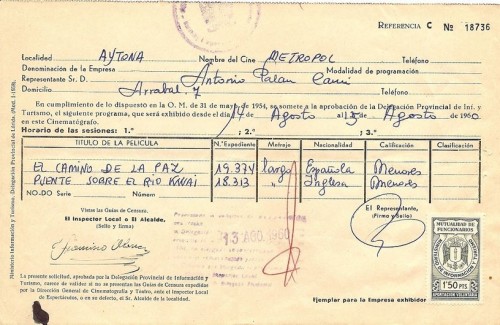 REFERENCIA C Nº 18736
Localidad AYTONA Nombre del Cine METROPOL Teléfono
Denominación de la Empresa Modalidad de programación
Representante Sr. D. Antonio Palau
Domicilio Arrabal. 7 Teléfono
En cumplimiento de lo dispuesto en la O. M. de 31 de mayo de 1954, se somete a la aprobación de la Delegación Provincial de Inf. y
Turismo, el siguiente programa, que será exhibido desde el día 14 Agosto al 15 Agosto de 1960
en este Cinematógrafo.
Horario de las sesiones: 1.ª ; 2.ª ; 3.ª
TITULO DE LA PELICULA N.º Expediente Metraje Nacionalidad Calificación Clasificación
EL CAMINO DE LA PAZ 19.374 largo Española Menores
PUENTE SOBRE EL RIO KWAI 18.313 " Inglesa Menores
NO-DO Serie Número
Vistas las Guías de Censura.
El Inspector Local o El Alcalde.
(Sello y firma)
El Representante,
(Firma y Sello)
13 AGO. 1960
MUTUALIDAD DE FUNCIONARIOS
MINISTERIO DE INFORMACION Y TURISMO
1'50 PTS
APORTACION VOLUNTARIA
La presente solicitud, aprobada por la Delegación Provincial de Información y
Turismo, carece de validez si no se presentan las Guías de Censura expedidas
por la Dirección General de Cinematografía y Teatro, ante el inspector Local
de Espectáculos, o en su defecto, el Sr. Alcalde de la localidad.
Ejemplar para la Empresa exhibidor
Ministerio Información y Turismo. Delegación Provincial de Lérida